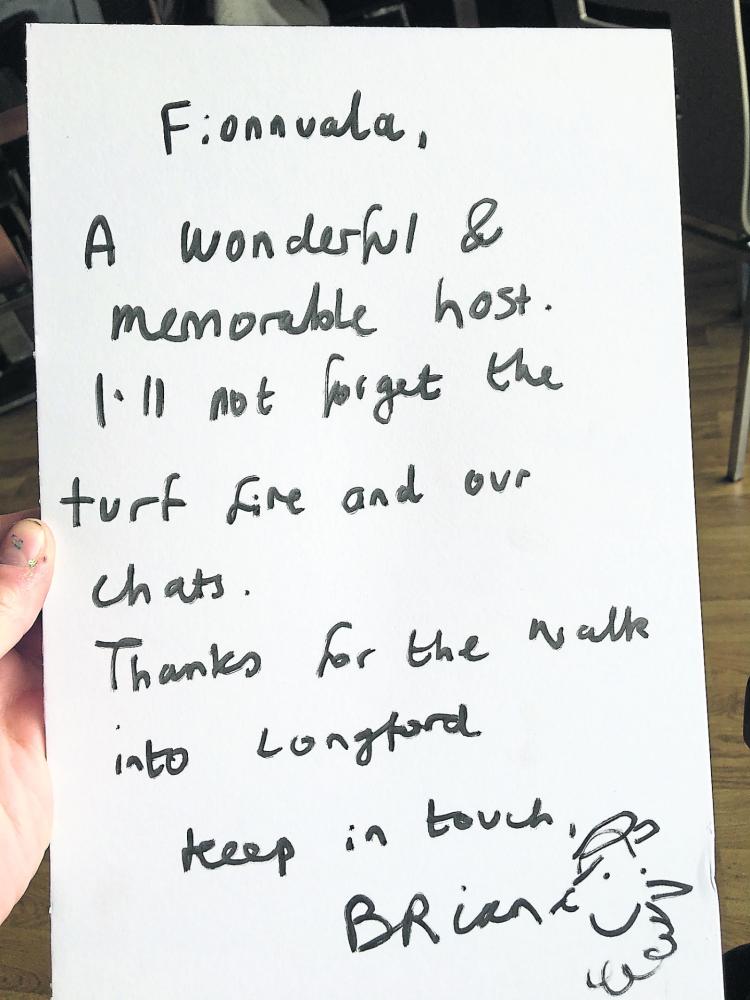 Fionnuala,
A wonderful &
memorable host.
I'll not forget the
turf fire and our
chats.
Thanks for the walk
into Longford
keep in touch,
BRian